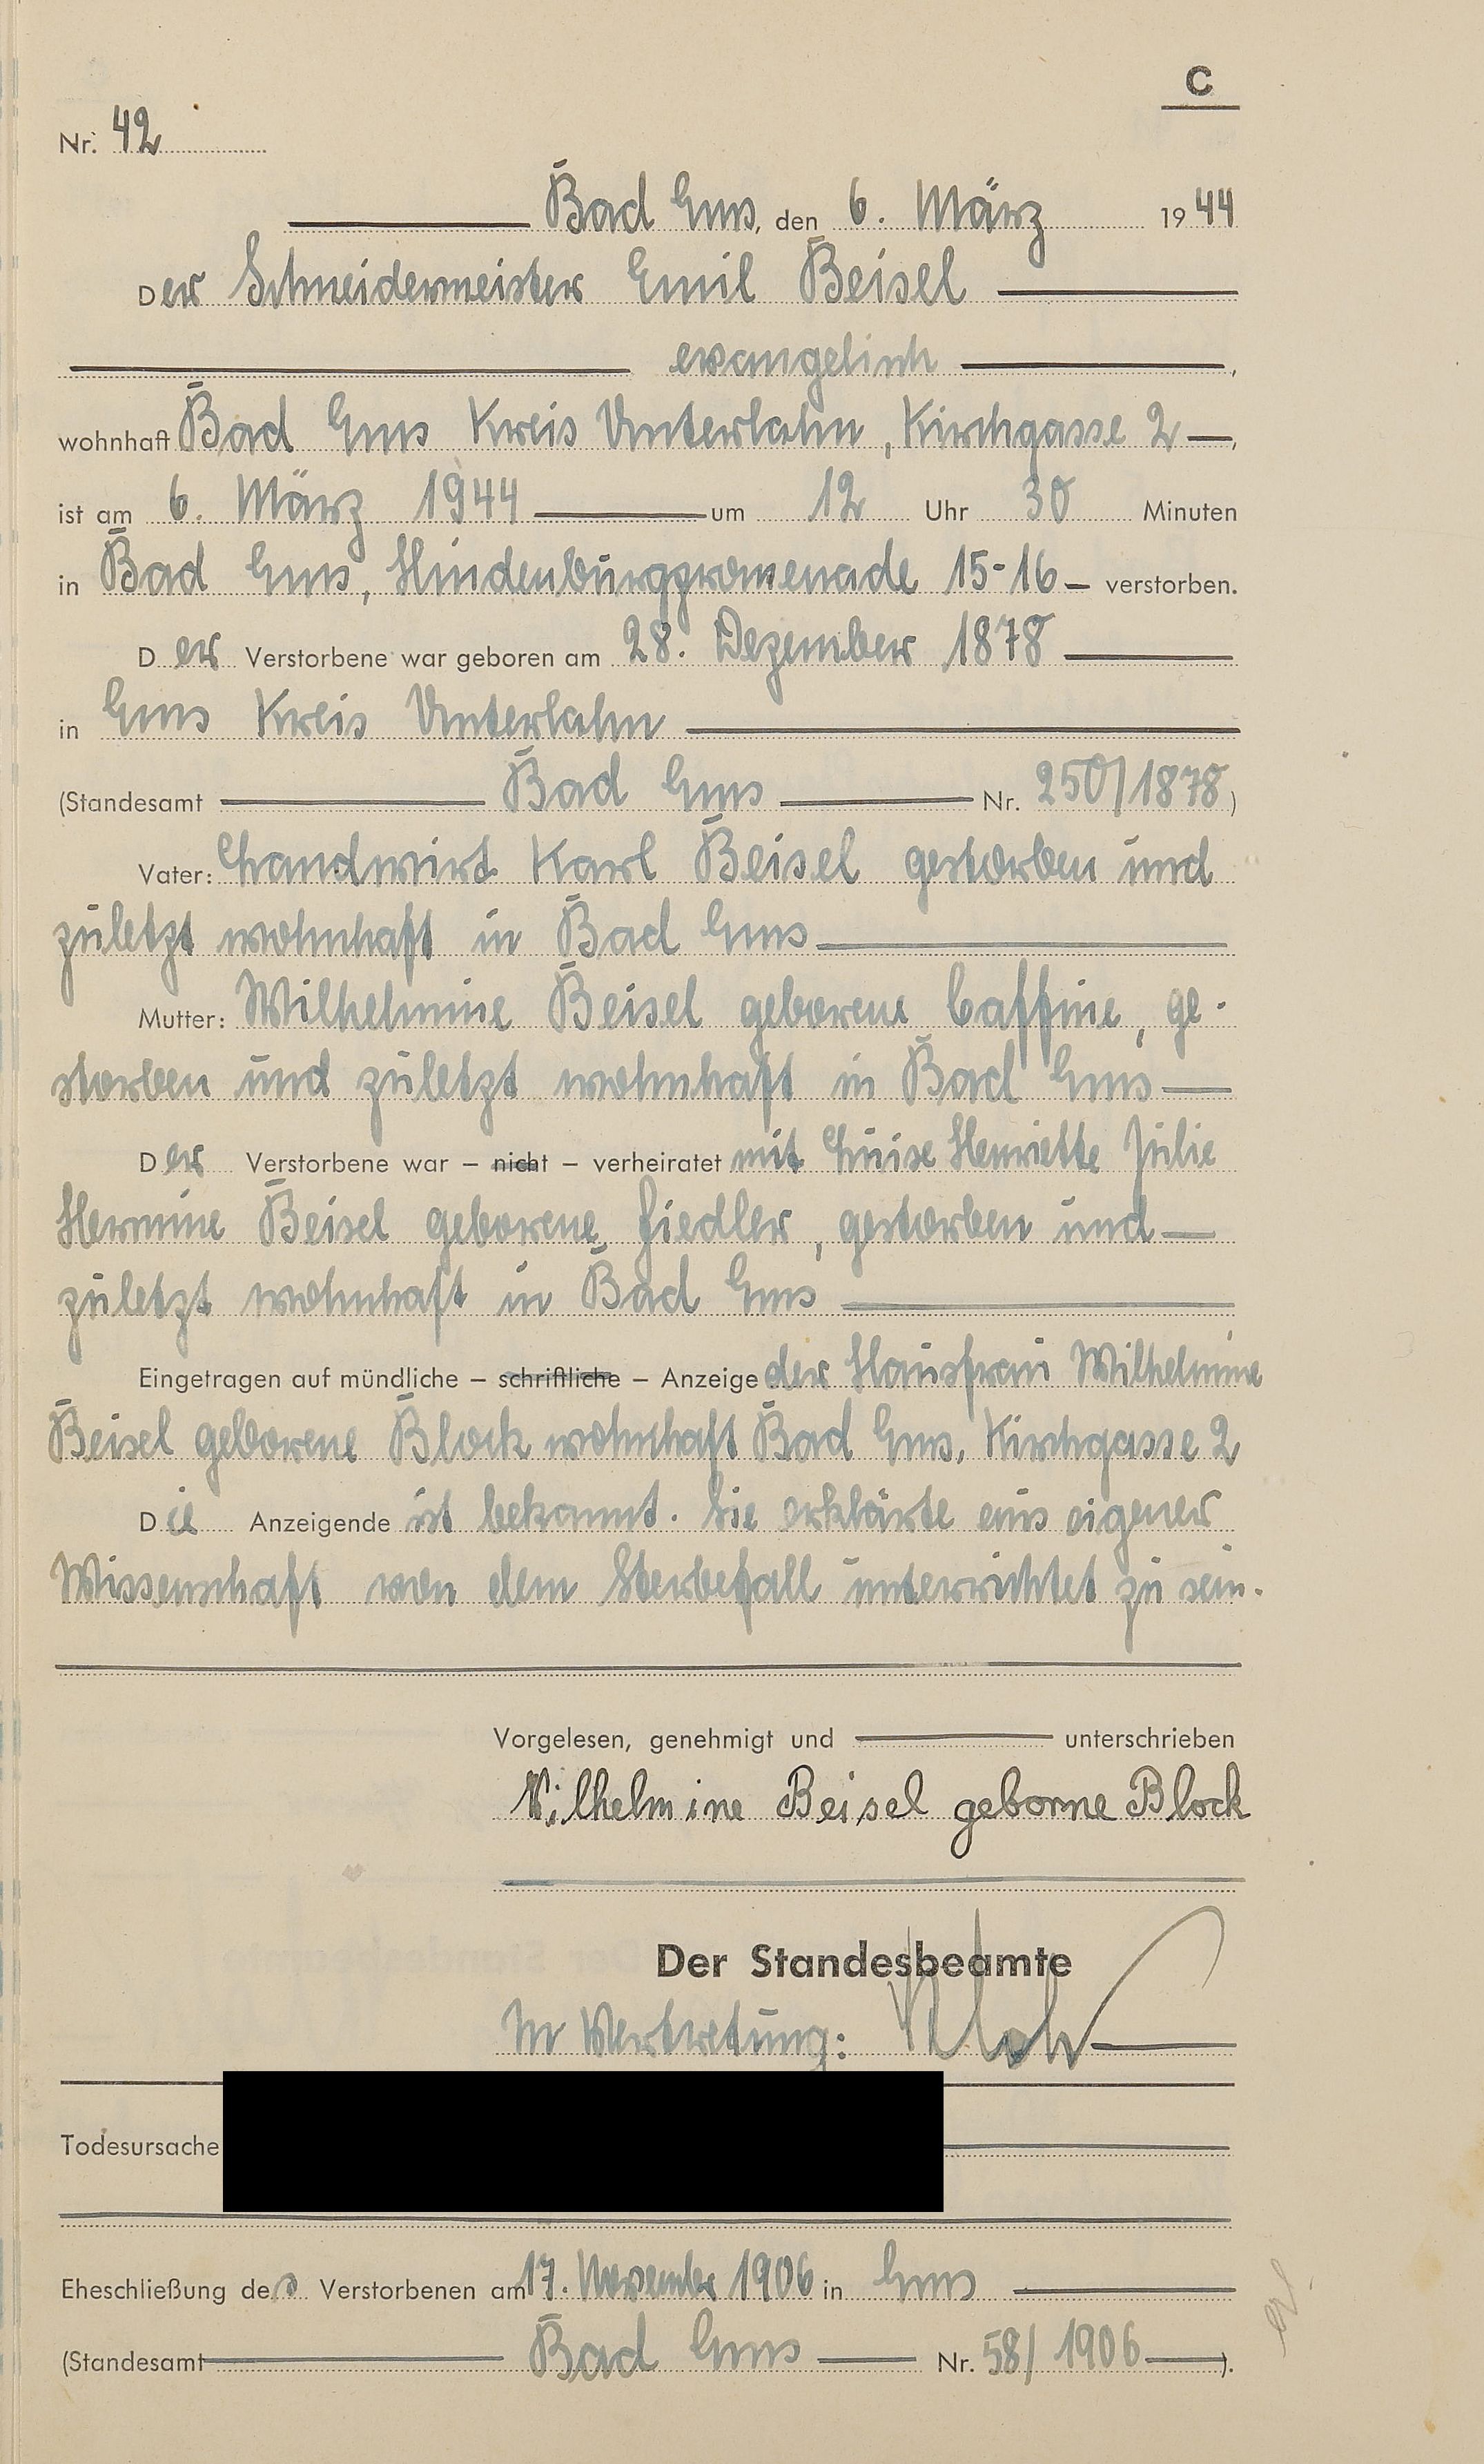 C
Nr. 42
Bad Ems, den 6. März 1944
Der Schneidermeister Emil Beisel
evangelisch,
wohnhaft Bad Ems Kreis Unterlahn, Kirchgasse 2,
ist am 6. März 1944 um 12 Uhr 30 Minuten
in Bad Ems, Hindenburgpromenade 15-16 verstorben.
Der Verstorbene war geboren am 28. Dezember 1878
in Ems Kreis Unterlahn
(Standesamt Bad Ems Nr. 250/1878)
Vater: Landwirt Karl Beisel gestorben und
zuletzt wohnhaft in Bad Ems
Mutter: Wilhelmine Beisel geborene Caffine, ge-
storben und zuletzt wohnhaft in Bad Ems
Der Verstorbene war – nicht – verheiratet mit Luise Henriette Julie
Hermine Beisel geborene Fiedler, gestorben und
zuletzt wohnhaft in Bad Ems
Eingetragen auf mündliche – schriftliche – Anzeige der Hausfrau Wilhelmine
Beisel geborene Block wohnhaft Bad Ems, Kirchgasse 2
Die Anzeigende ist bekannt. Sie erklärte aus eigener
Wissenschaft von dem Sterbefall unterrichtet zu sein.
Vorgelesen, genehmigt und unterschrieben
Wilhelmine Beisel geborne Block
Der Standesbeamte
In Vertretung:
Todesursache
Eheschließung des Verstorbenen am 17. November 1906 in Ems
(Standesamt Bad Ems Nr. 58/1906).